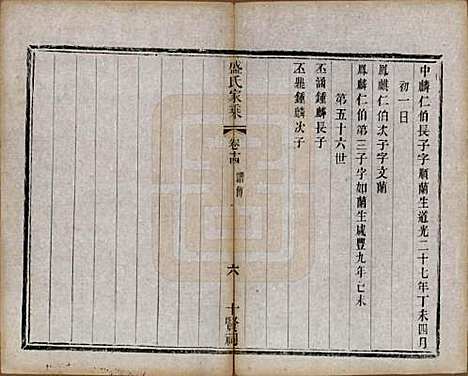 中麟仁伯長子字順蘭生道光二十七年丁未四月
初一日
鳳麒仁伯次子字文蘭
鳳麟仁伯第三子字如蘭生咸豐九年己未
第五十六世
丕誦鍾麟長子
丕雅鍾麟次子
盛氏家乘
卷十四
六
十賢祠